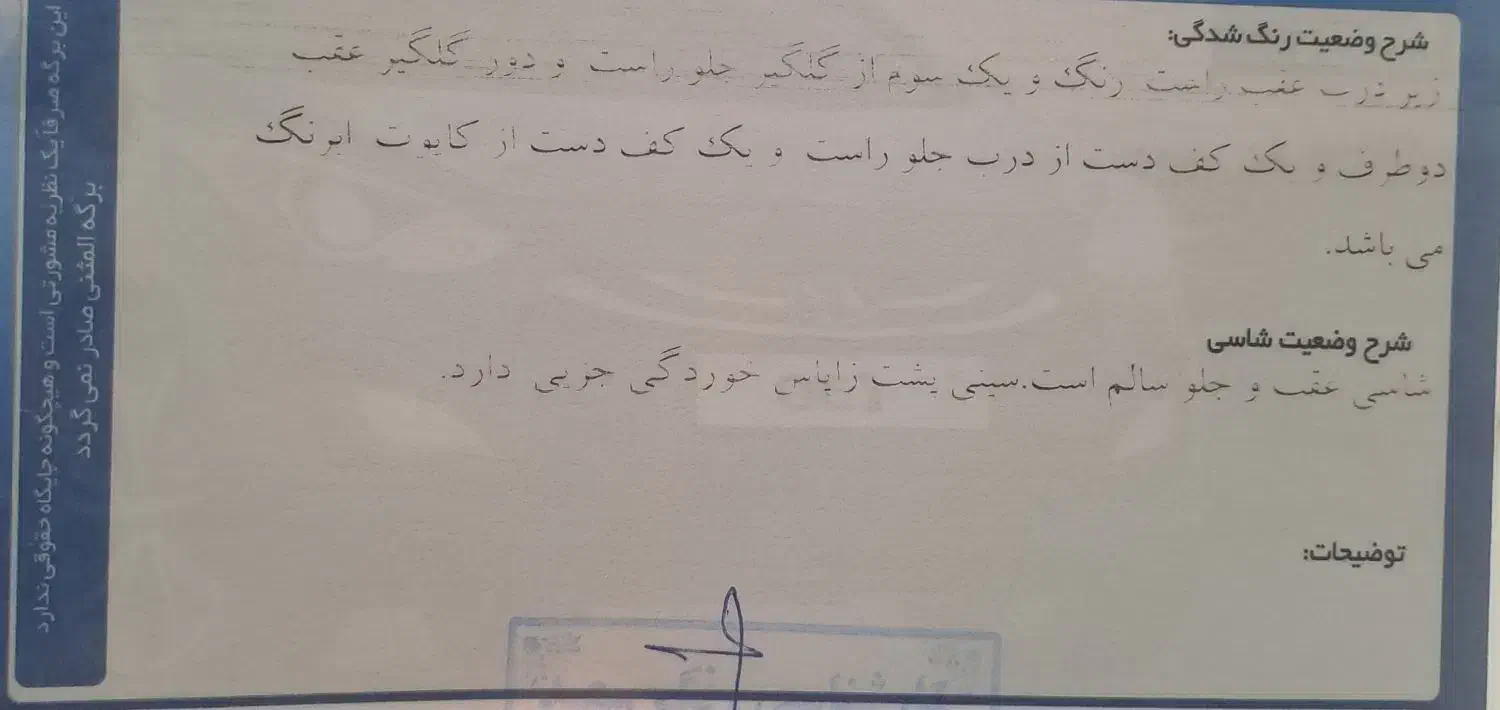 شرح وضعیت رنگ شدگی:
زیر درب عقب راست رنگ و یک سوم از گلگیر جلو راست و دور گلگیر عقب
دو طرف و یک کف دست از درب جلو راست و یک کف دست از کاپوت ابرنگ
می باشد.
شرح وضعیت شاسی
شاسی عقب و جلو سالم است.سینی پشت زاپاس خوردگی جزیی دارد.
توضیحات:
این برگه صرفا یک نظریه مشورتی است و هیچگونه جایگاه حقوقی ندارد
برگه المثنی صادر نمی گردد